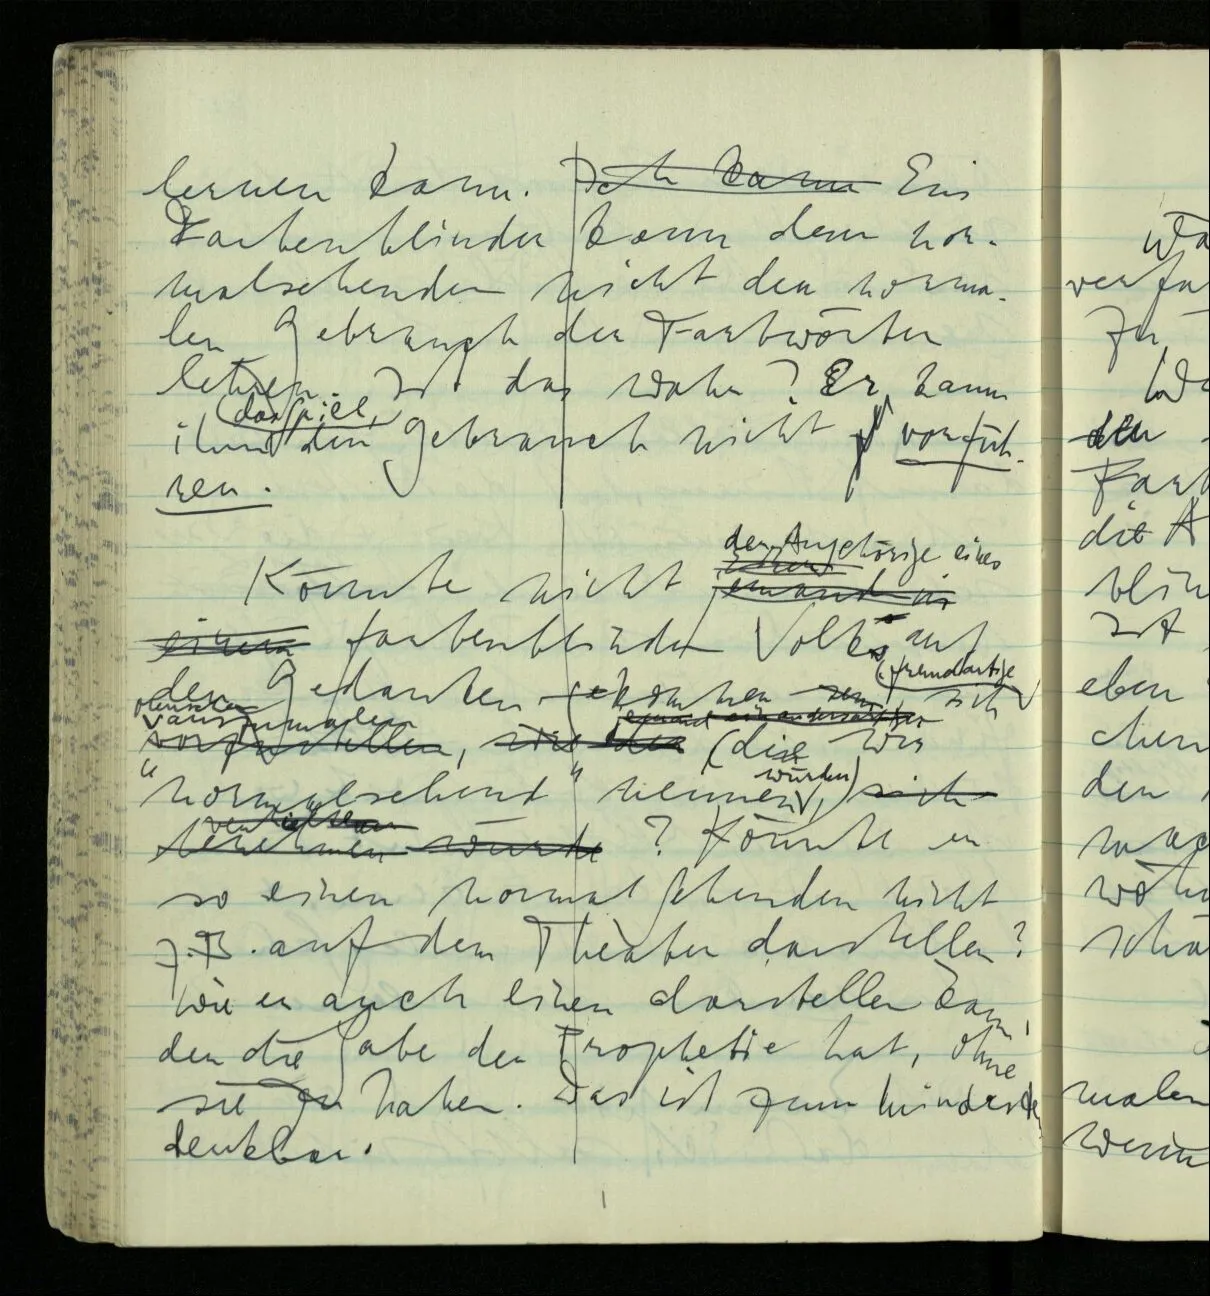 lernen kann. Ich kann Ein
Farbenblinder kann dem nor-
malsehenden nicht den norma-
len Gebrauch der Farbwörter
lehren. Ist das wahr? Er kann
(das Spiel,
ihm den Gebrauch nicht vorfüh-
ren.
der Angehörige eines
Könnte nicht jemand in
einem farbenblinden Volks auf
(fremdartige
den Gedanken gekommen sein, sich
Menschen
auszumalen
vorzustellen, wie der (die wir
würden)
"normalsehend" nennen, sich
benehmen würde? Könnte er
so einen normal Sehenden nicht
z.B. auf dem Theater darstellen?
Wie er auch einen darstellen kann,
der die Gabe der Prophetie hat, ohne
sie zu haben. Das ist zum mindesten
denkbar.
Wa
verfa
zu
Wa
den
Farb
die A
blin
ist
eben
chen
den
mac
wöhn
scha
malen
wenn